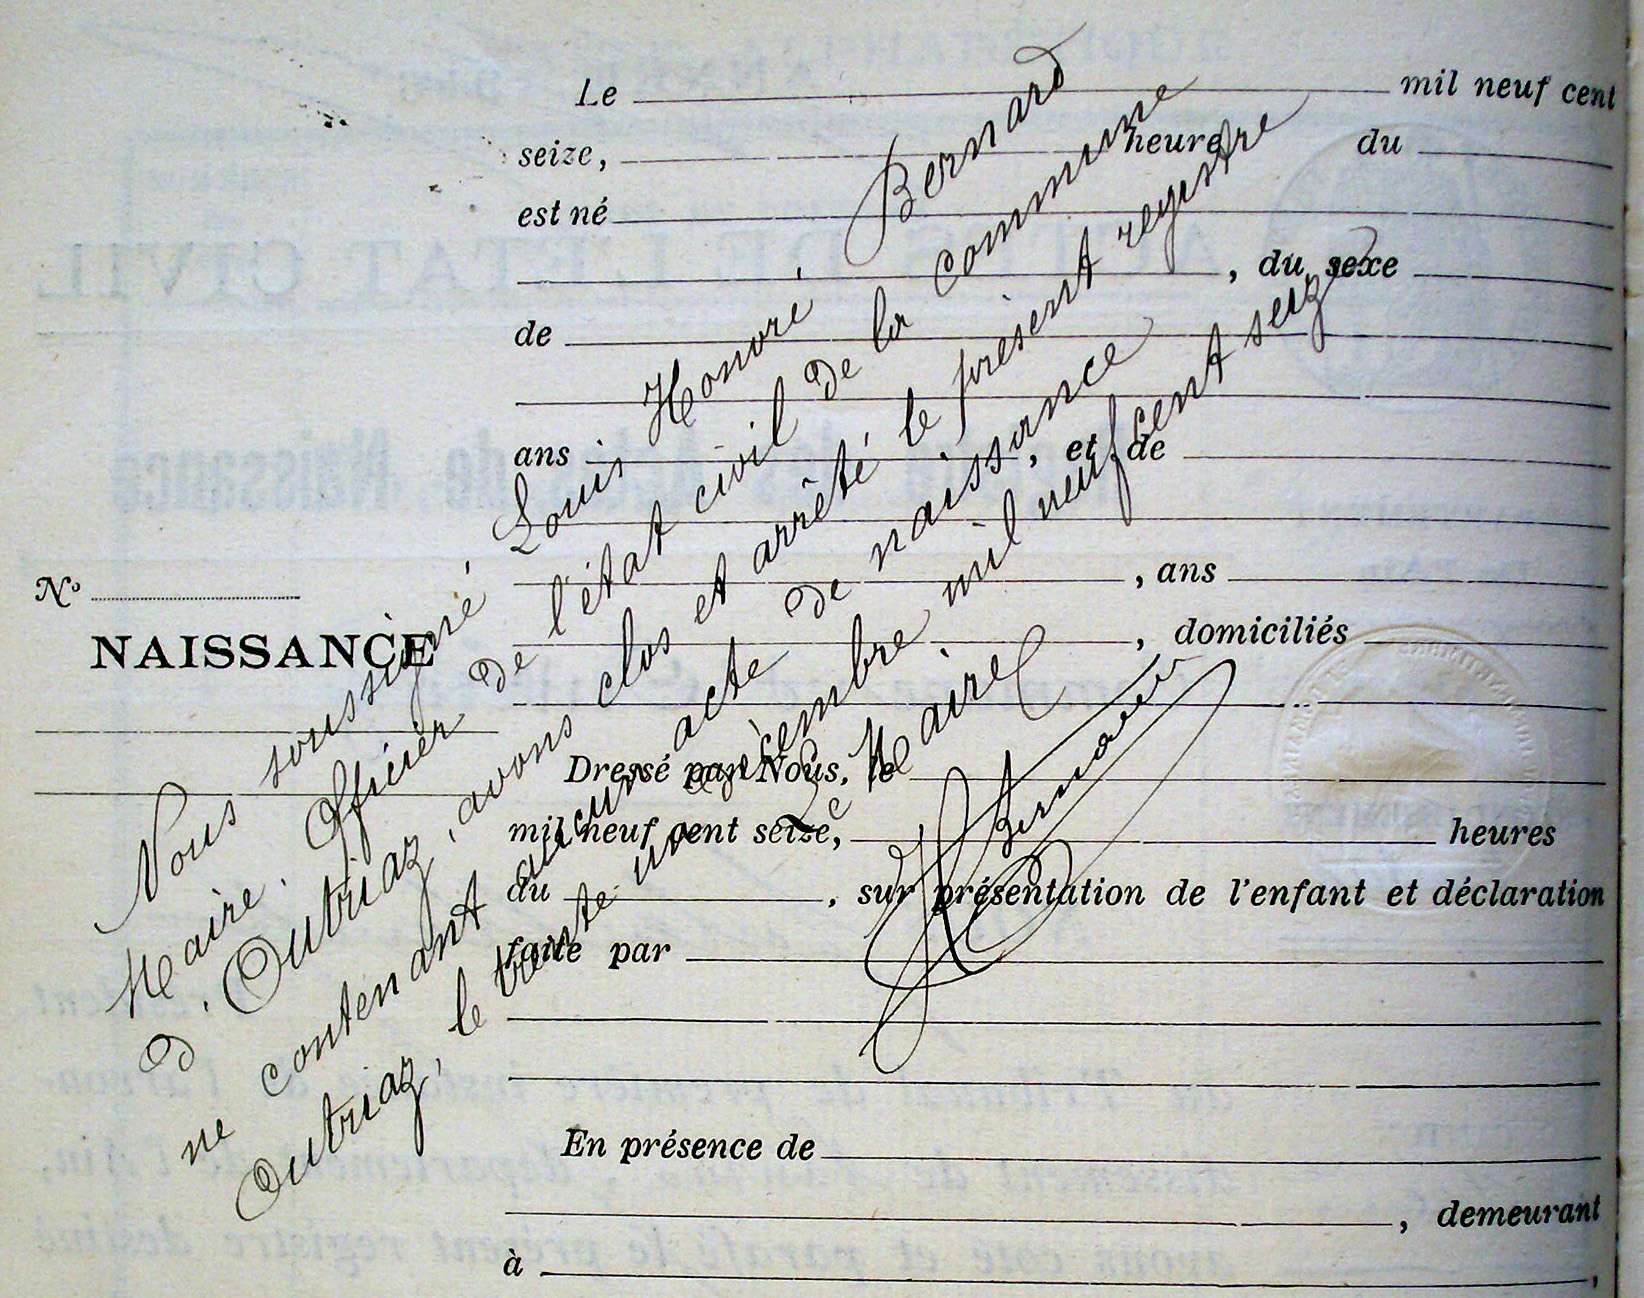 Le mil neuf cent
seize, heure du
est né
, du sexe
de
ans , et de
, ans
, domiciliés
N°
NAISSANCE
Dressé par Nous, le
mil neuf cent seize, heures
du , sur présentation de l'enfant et déclaration
faite par
En présence de
, demeurant
à ,
Nous soussigné, Louis Honoré, Bernard
Maire, Officier de l'état civil de la commune
d'Outriaz, avons clos et arrêté le présent registre
ne contenant aucun acte de naissance
Outriaz, le trente un décembre mil neuf cent seize
Le Maire
Bernard